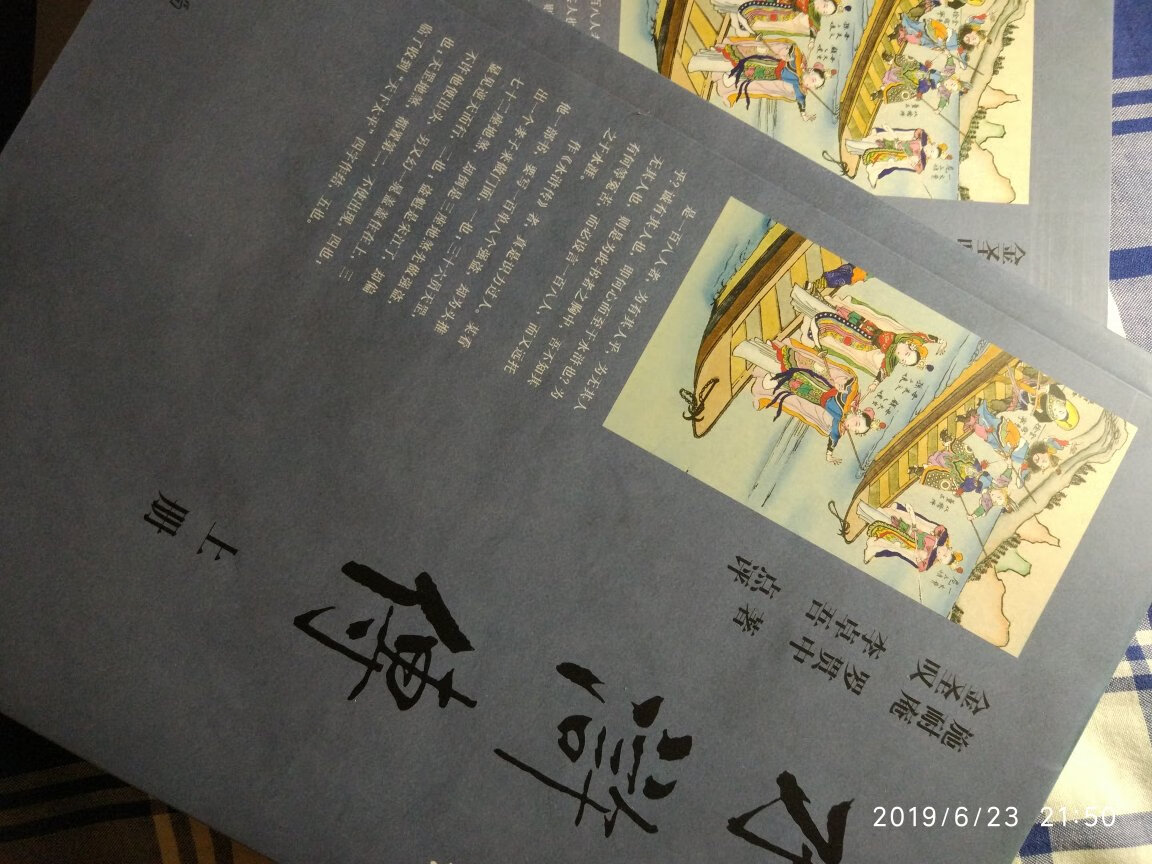 是一百八人者，为有其人乎，为无其人
乎？诚有其人也，即何心而至于水浒也？为
无其人也，则是为此书者之胸中，吾不知其
有何等冤苦，而必设言一百八人，而又远托
之于水涯。
作《水浒传》者，真是识力过人。某看
他一部书，要写一百单八个强盗，却为头推
出一个孝子来做门面，一也；三十六员天罡，
七十二座地煞，却倒是三座地煞先做强盗，
显见逆天而行，二也；盗魁是宋江了，却偏
不许他便出头，另又幻一晁盖盖住在上，三
也；天罡地煞，都置第二，不使出现，四也；
临了收到“天下太平”四字作结，五也。
施耐庵 罗贯中 著
金圣叹 李卓吾 点评
水滸傳
上册
金圣叹
2019/6/23 21:50